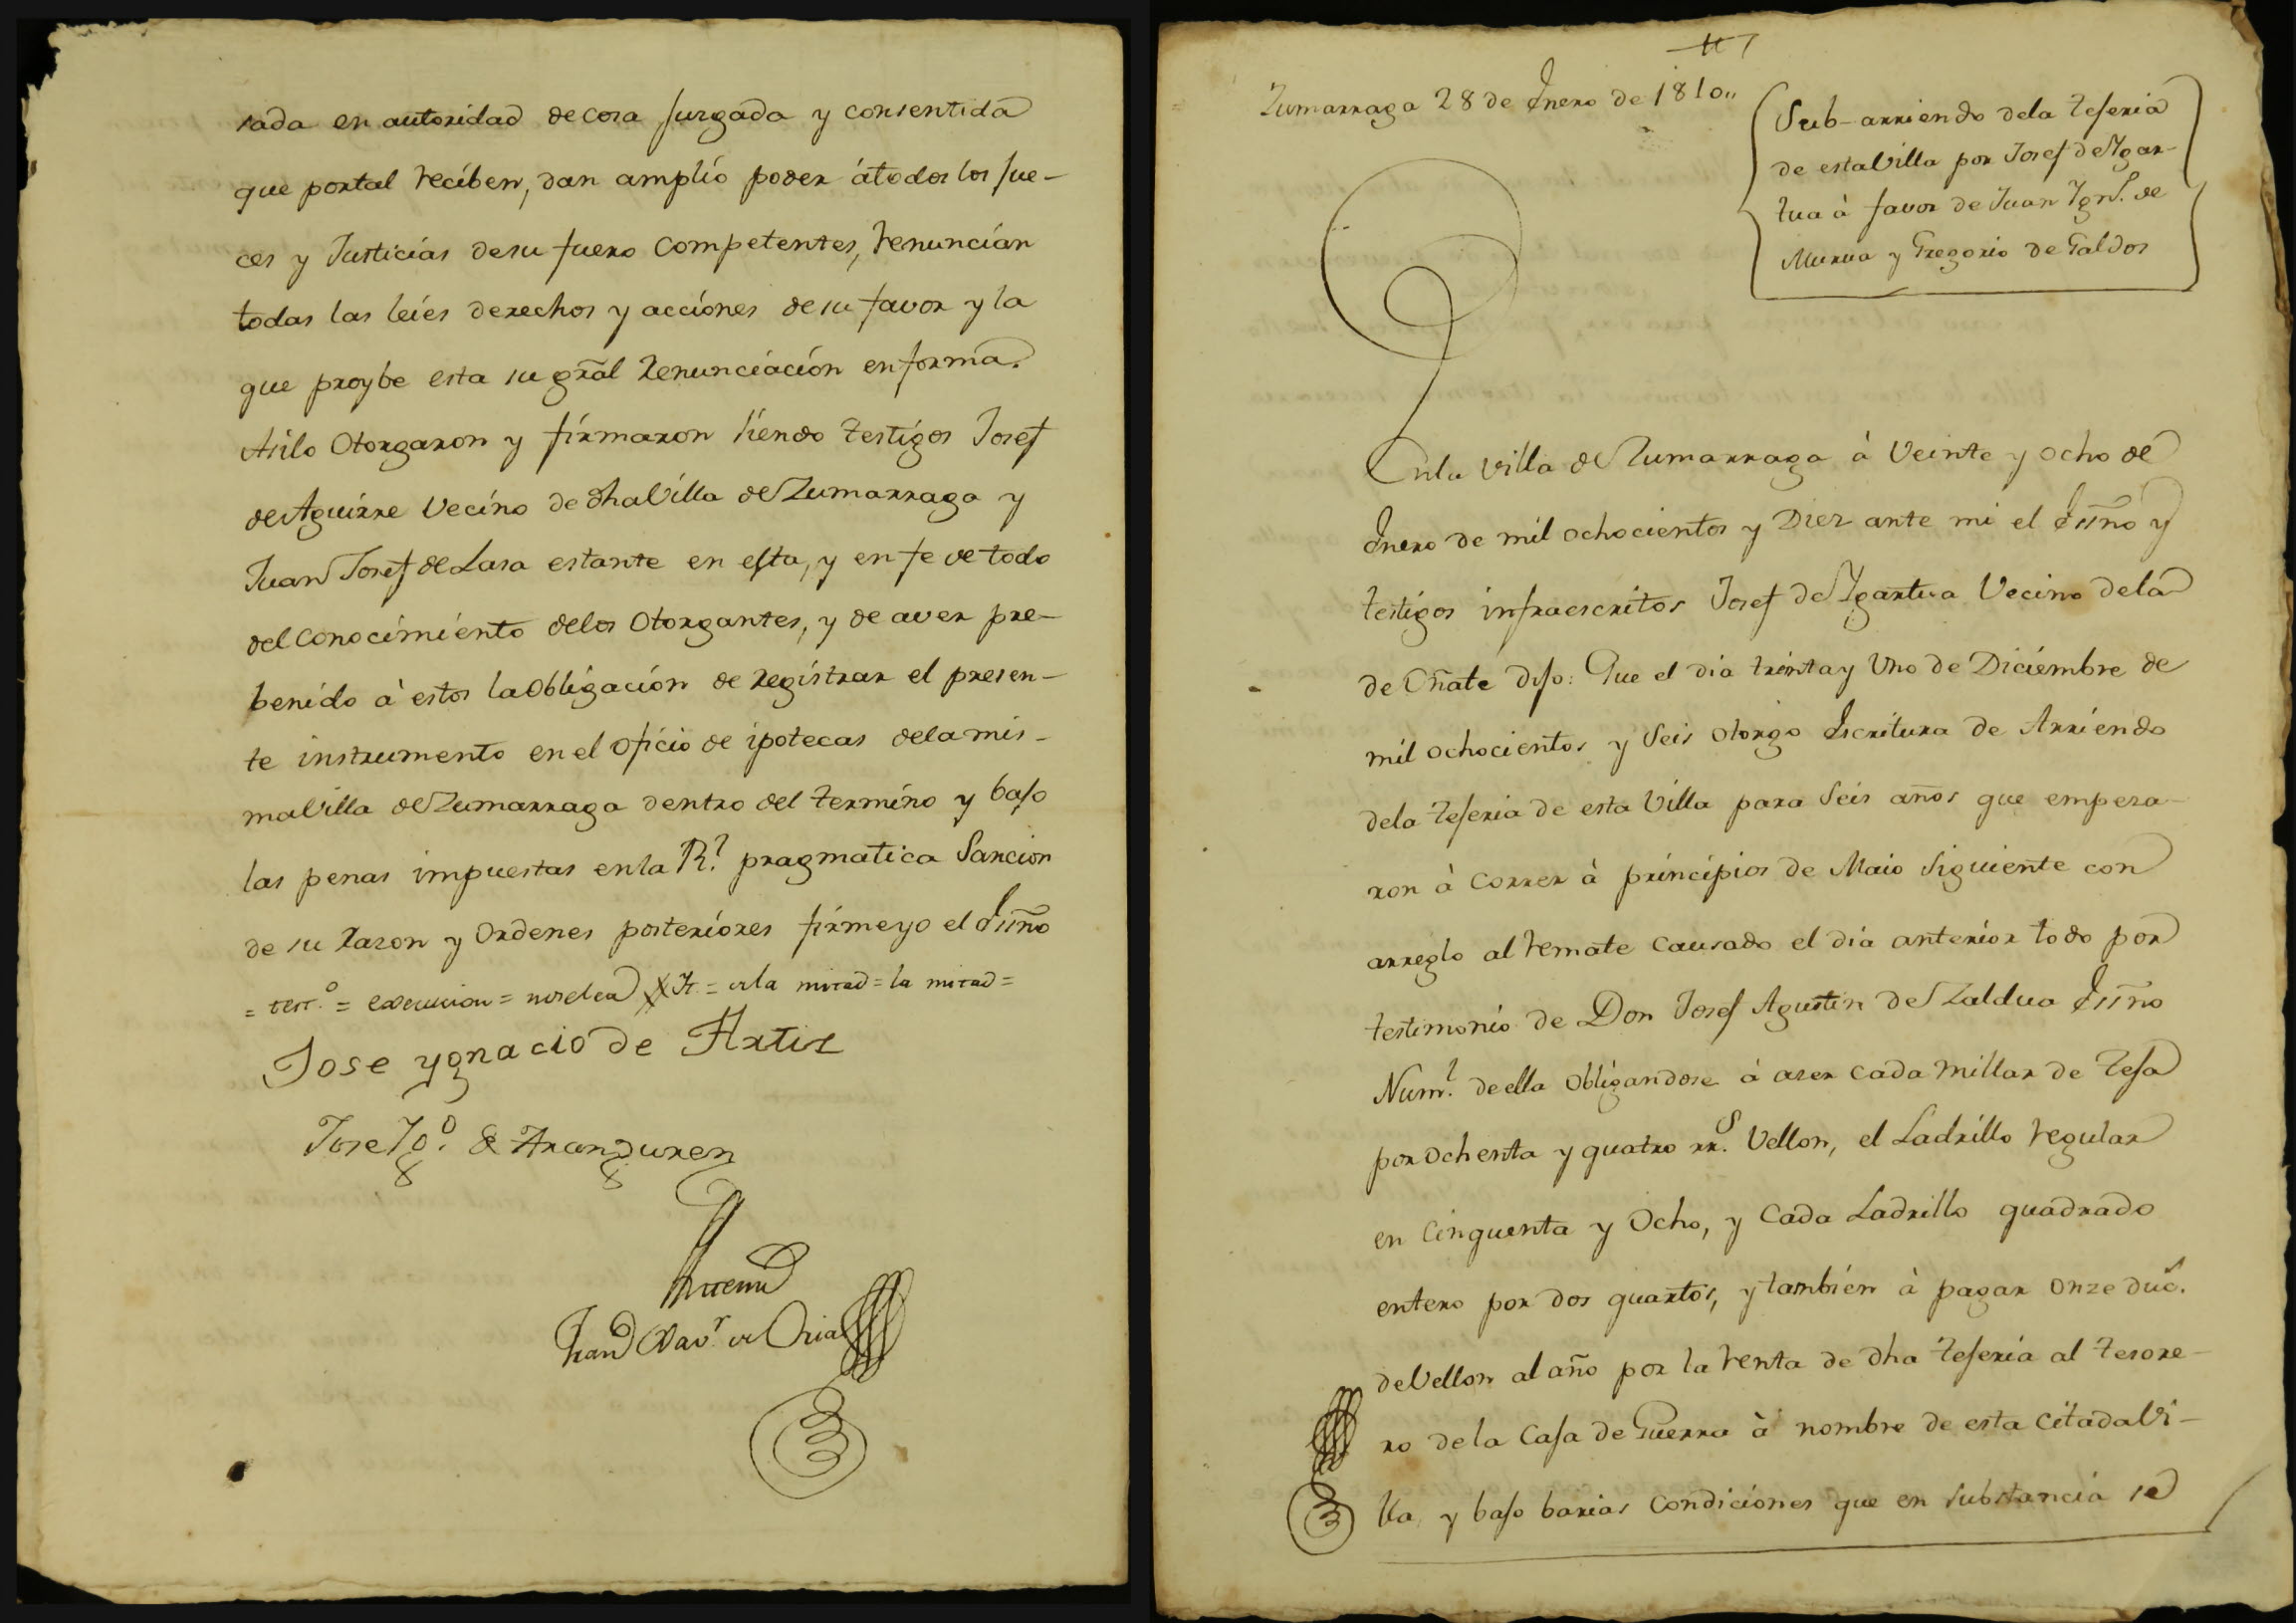 sada en autoridad de cosa jurgada y consentida
que portal reciben, dan amplio poder átodos los jue-
ces y Justicias desu fuero competentes, renuncian
todas las leies derechos y acciones de su favor y la
que proybe esta su gr̃al Renunciación enforma.
Asilo Otorgaron y firmaron siendo testigos Josef
de Aguirre Vecino de dhaVilla de Zumarraga y
Juan Josef de Lasa estante en esta, y en fe de todo
del conocimiento delos Otorgantes, y de aver pre-
benido à estos laObligación de registrar el presen-
te instrumento en el oficio de ipotecas dela mis-
maVilla de Zumarraga dentro del termino y bajo
las penas impuestas enla Rl. pragmatica Sancion
de su razon y Ordenes posteriores firmeyo el Essño
= test.o = execucion = = la mitad = la mitad =
Jose ygnacio de Artiz
Jose Ygo. de Aranguren
Antemi
Fran Xavr. de Oria
117
Zumarraga 28 de Enero de 1810,,
Sub-arriendo dela tejeria
de estaVilla por Josef de Ygar-
tua à favor de Juan Ygns. de
Murua y Gregorio de Galdos
Enla Villa de Zumarraga à Veinte y ocho de
Enero de mil ochocientos y Diez ante mi el Essño y
testigos infraescritos Josef de Ygartua Vecino dela
de Oñate dijo: Que el dia treinta y Uno de Diciembre de
mil ochocientos y Seis otorgo Escritura de Arriendo
dela tejeria de esta Villa para Seis años que empeza-
ron à correr à principios de Maio Siguiente con
arreglo al remate causado el dia anterior todo por
testimonio de Don Josef Agustin de Zaldua Essño
Numl. de ella Obligandose à azer cada Millar de teja
por Ochenta y quatro rrs. Vellon, el Ladrillo regular
en Cinquenta y Ocho, y Cada Ladrillo quadrado
entero por dos quartos, y tambien à pagar onze ducs.
deVellon al año por la renta de dha tejeria al tesore-
ro dela Casa de Guerra à nombre de esta CitadaVi-
lla, y bajo barias condiciones que en substancia se